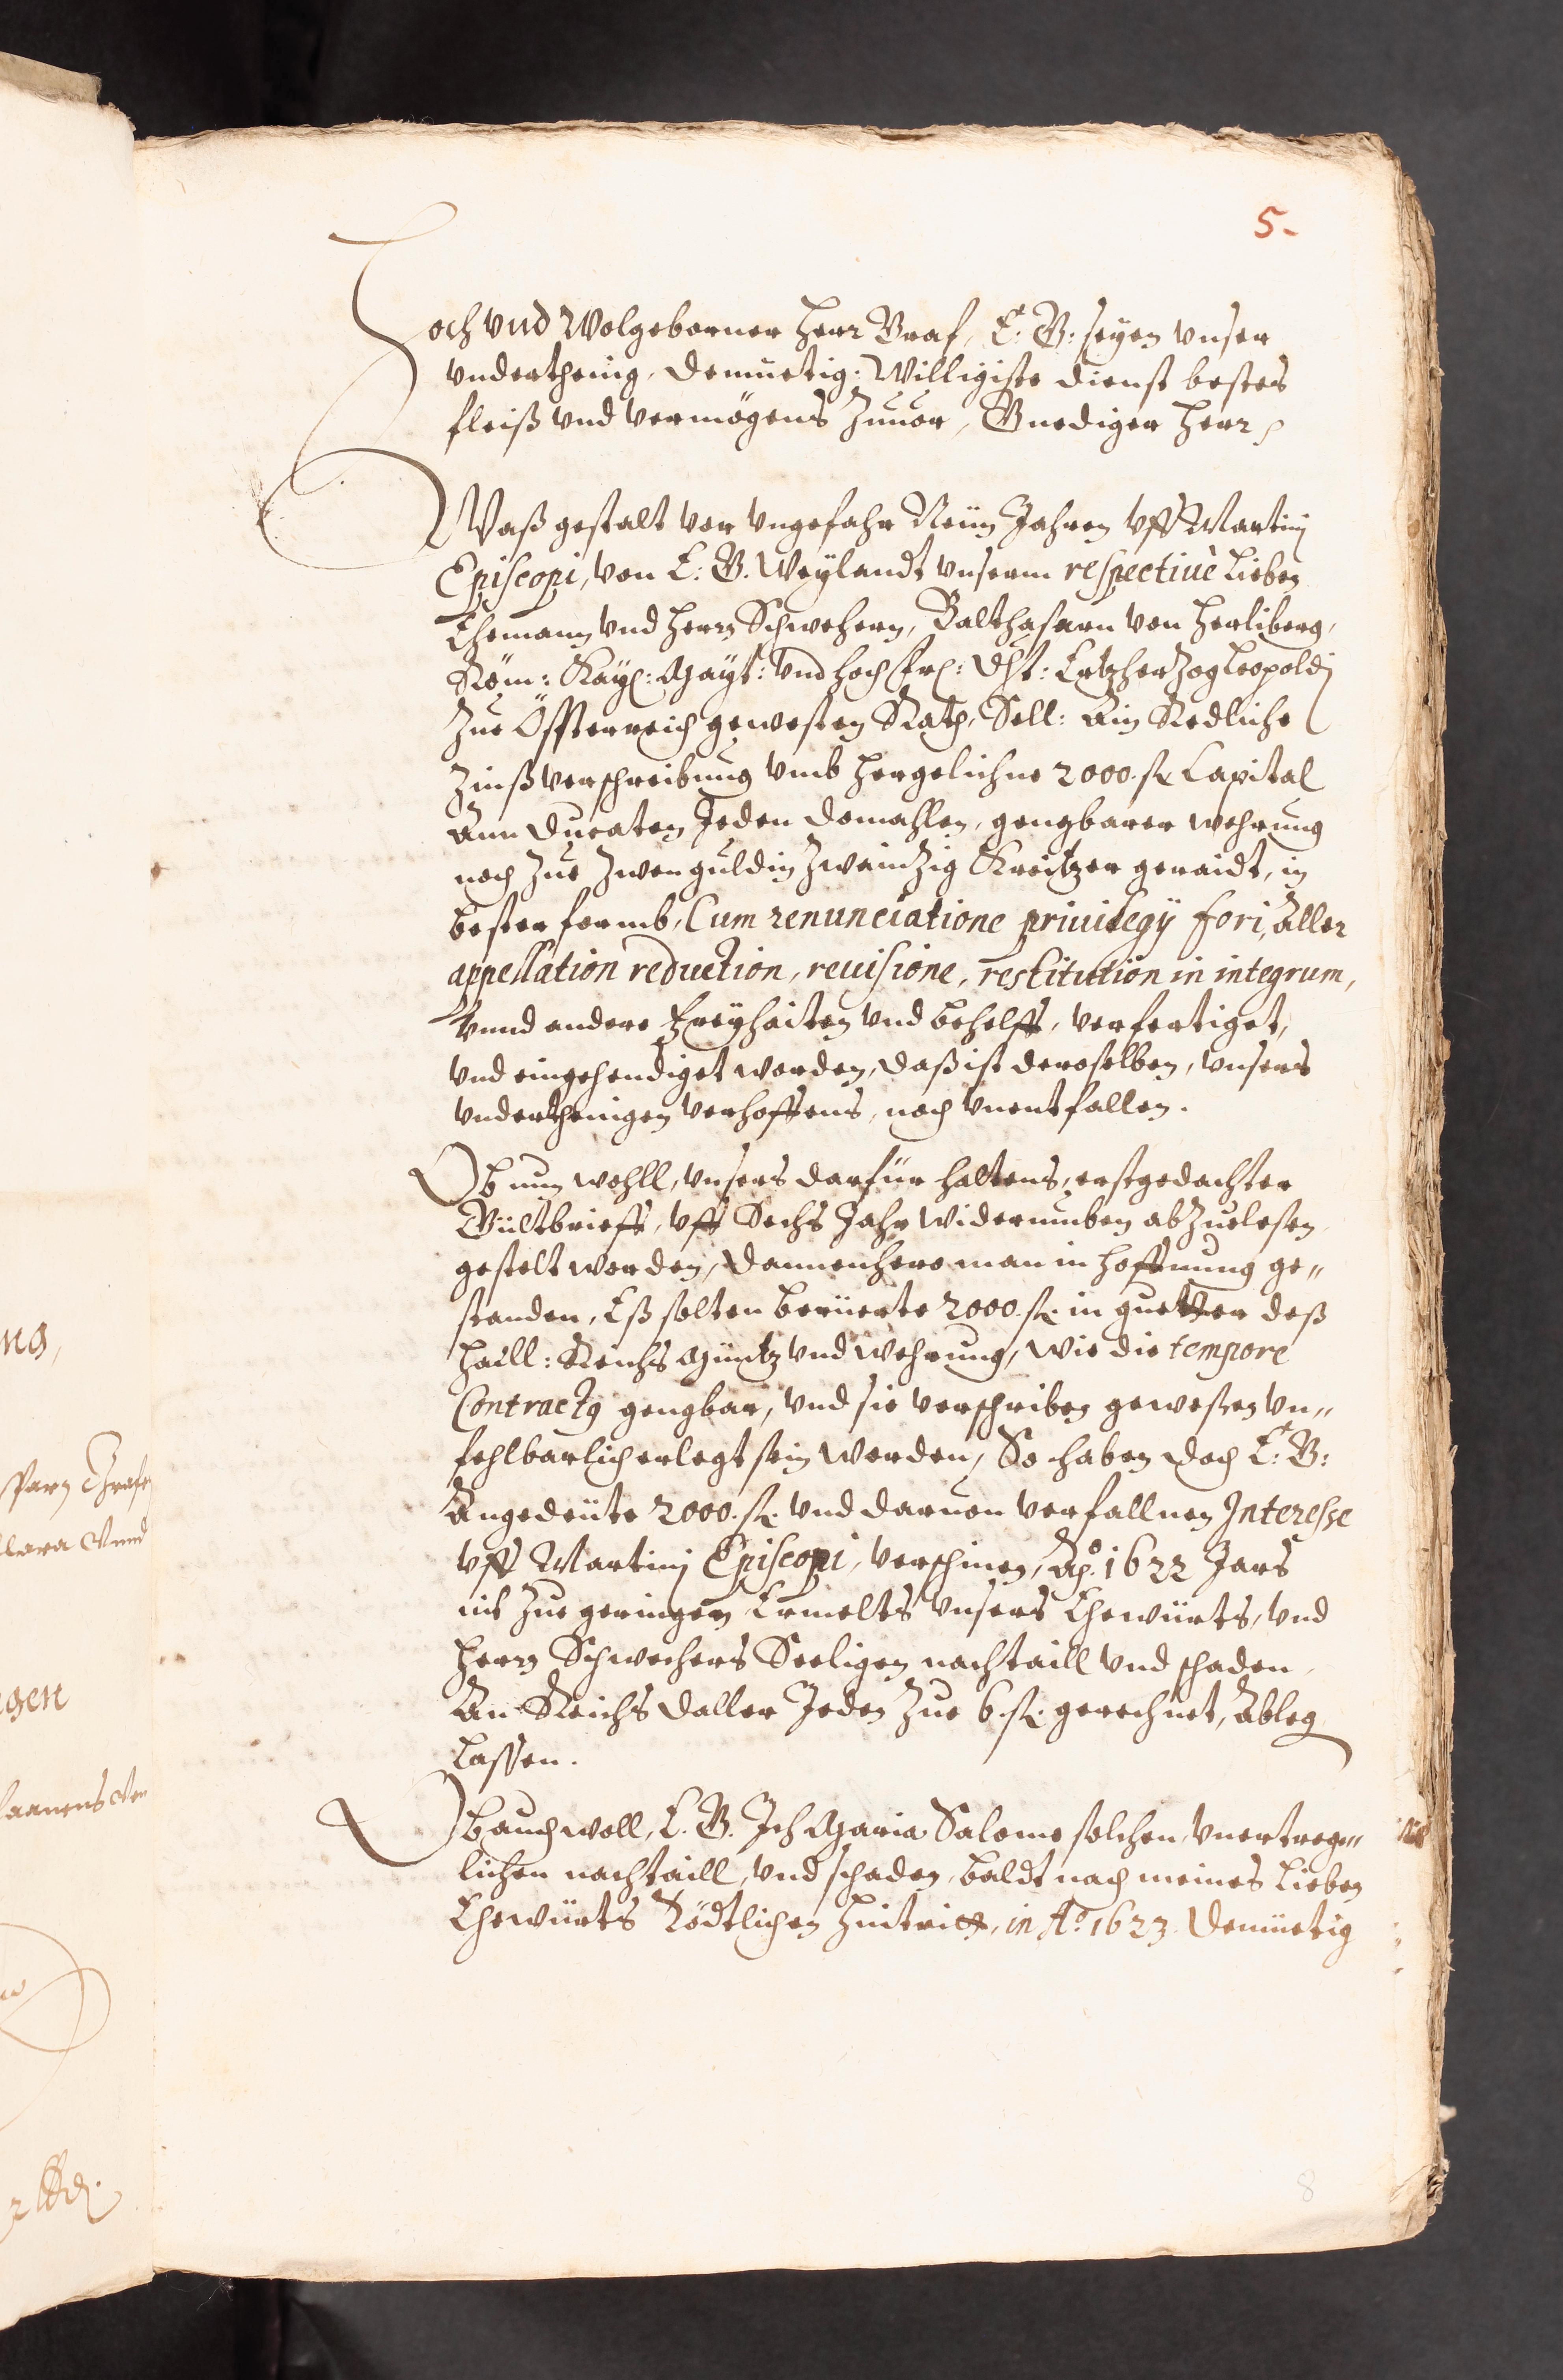 5.
Hoch vnd Wolgeborner Herr Graf, E: G: seyen vnser
vnderthenig, demüetig: Willigiste dienst bestes
fleiß vnd vermögens Zuuor, Gnediger Herr
Waß gestalt vor vngefahr Neün Jahren vff Martinj
Episcopi, von E: G. Weylandt vnserm respectiuè Lieben
Ehemann vnd Herrn Schwehern, Balthasarn von Herliberg,
Röm: Kay: Mayt: vnd hoch Frl: Dht: Ertzherzog Leopoldj
Zue Össterreich gewesten Rath, Sell: Ein Redliche
Zinßverschreibung vmb hergelichne 2000. fl. Capital
Ann Ducaten Jeden domahlen, gengbarer wehrung
noch Zue Zwen guldin Zwainzig Kreitzer geraidt, in
bester formb, Cum renunciatione priuilegÿ fori, Aller
appellation reduction, reuisione, restitution in integrum,
vnnd andere Freyhaiten vnd behelff, verfertiget,
vnd eingehendiget worden, daß ist deroselben, vnsers
vnderthenigen verhoffens, noch vnentfallen.
Ob nun wohll, vnsers darfür haltens, erstgedachter
Gültbrieff, vff Sechs Jahr widerumben abzuelesen
gestelt worden, dannenhero man in hoffnung ge„
standen, Eß solten berüerte 2000. fl. in guetter deß
Haill: Reichs Müntz vnd wehrung, wie die tempore
Contractus gengbar, vnd sie verschriben gewesen vn„
fehlbarlich erlegt sein worden, So haben doch E: G:
Angedeüte 2000. fl. vnd daruon verfallnen Interesse
vff Martinj Episcopi, verschinen, Ao. 1622 Jars
nit Zue geringem Ermelts vnsers Ehewürts, vnd
Herrn Schwehers Seeligen nachtaill vnd schaden,
An Reichs daller Jeden Zue 6. fl. gerechnet, Ableg
Lassen.
Ob auch woll, E. G. Ich Maria Salome solchen, vnertreg„
lichen nachtaill, vnd schaden, baldt nach meines Lieben
Ehewürts Tödtlichen hintritt, in Ao. 1623. demüetig
8